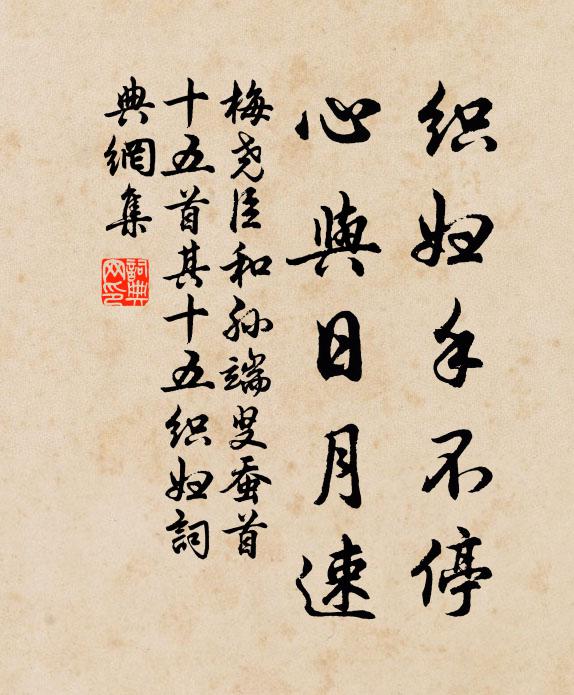 织妇手不停
心與日月速
梅尧臣和孙端叟蚕首
十五首其十五织妇詞
典網集
詞典网印